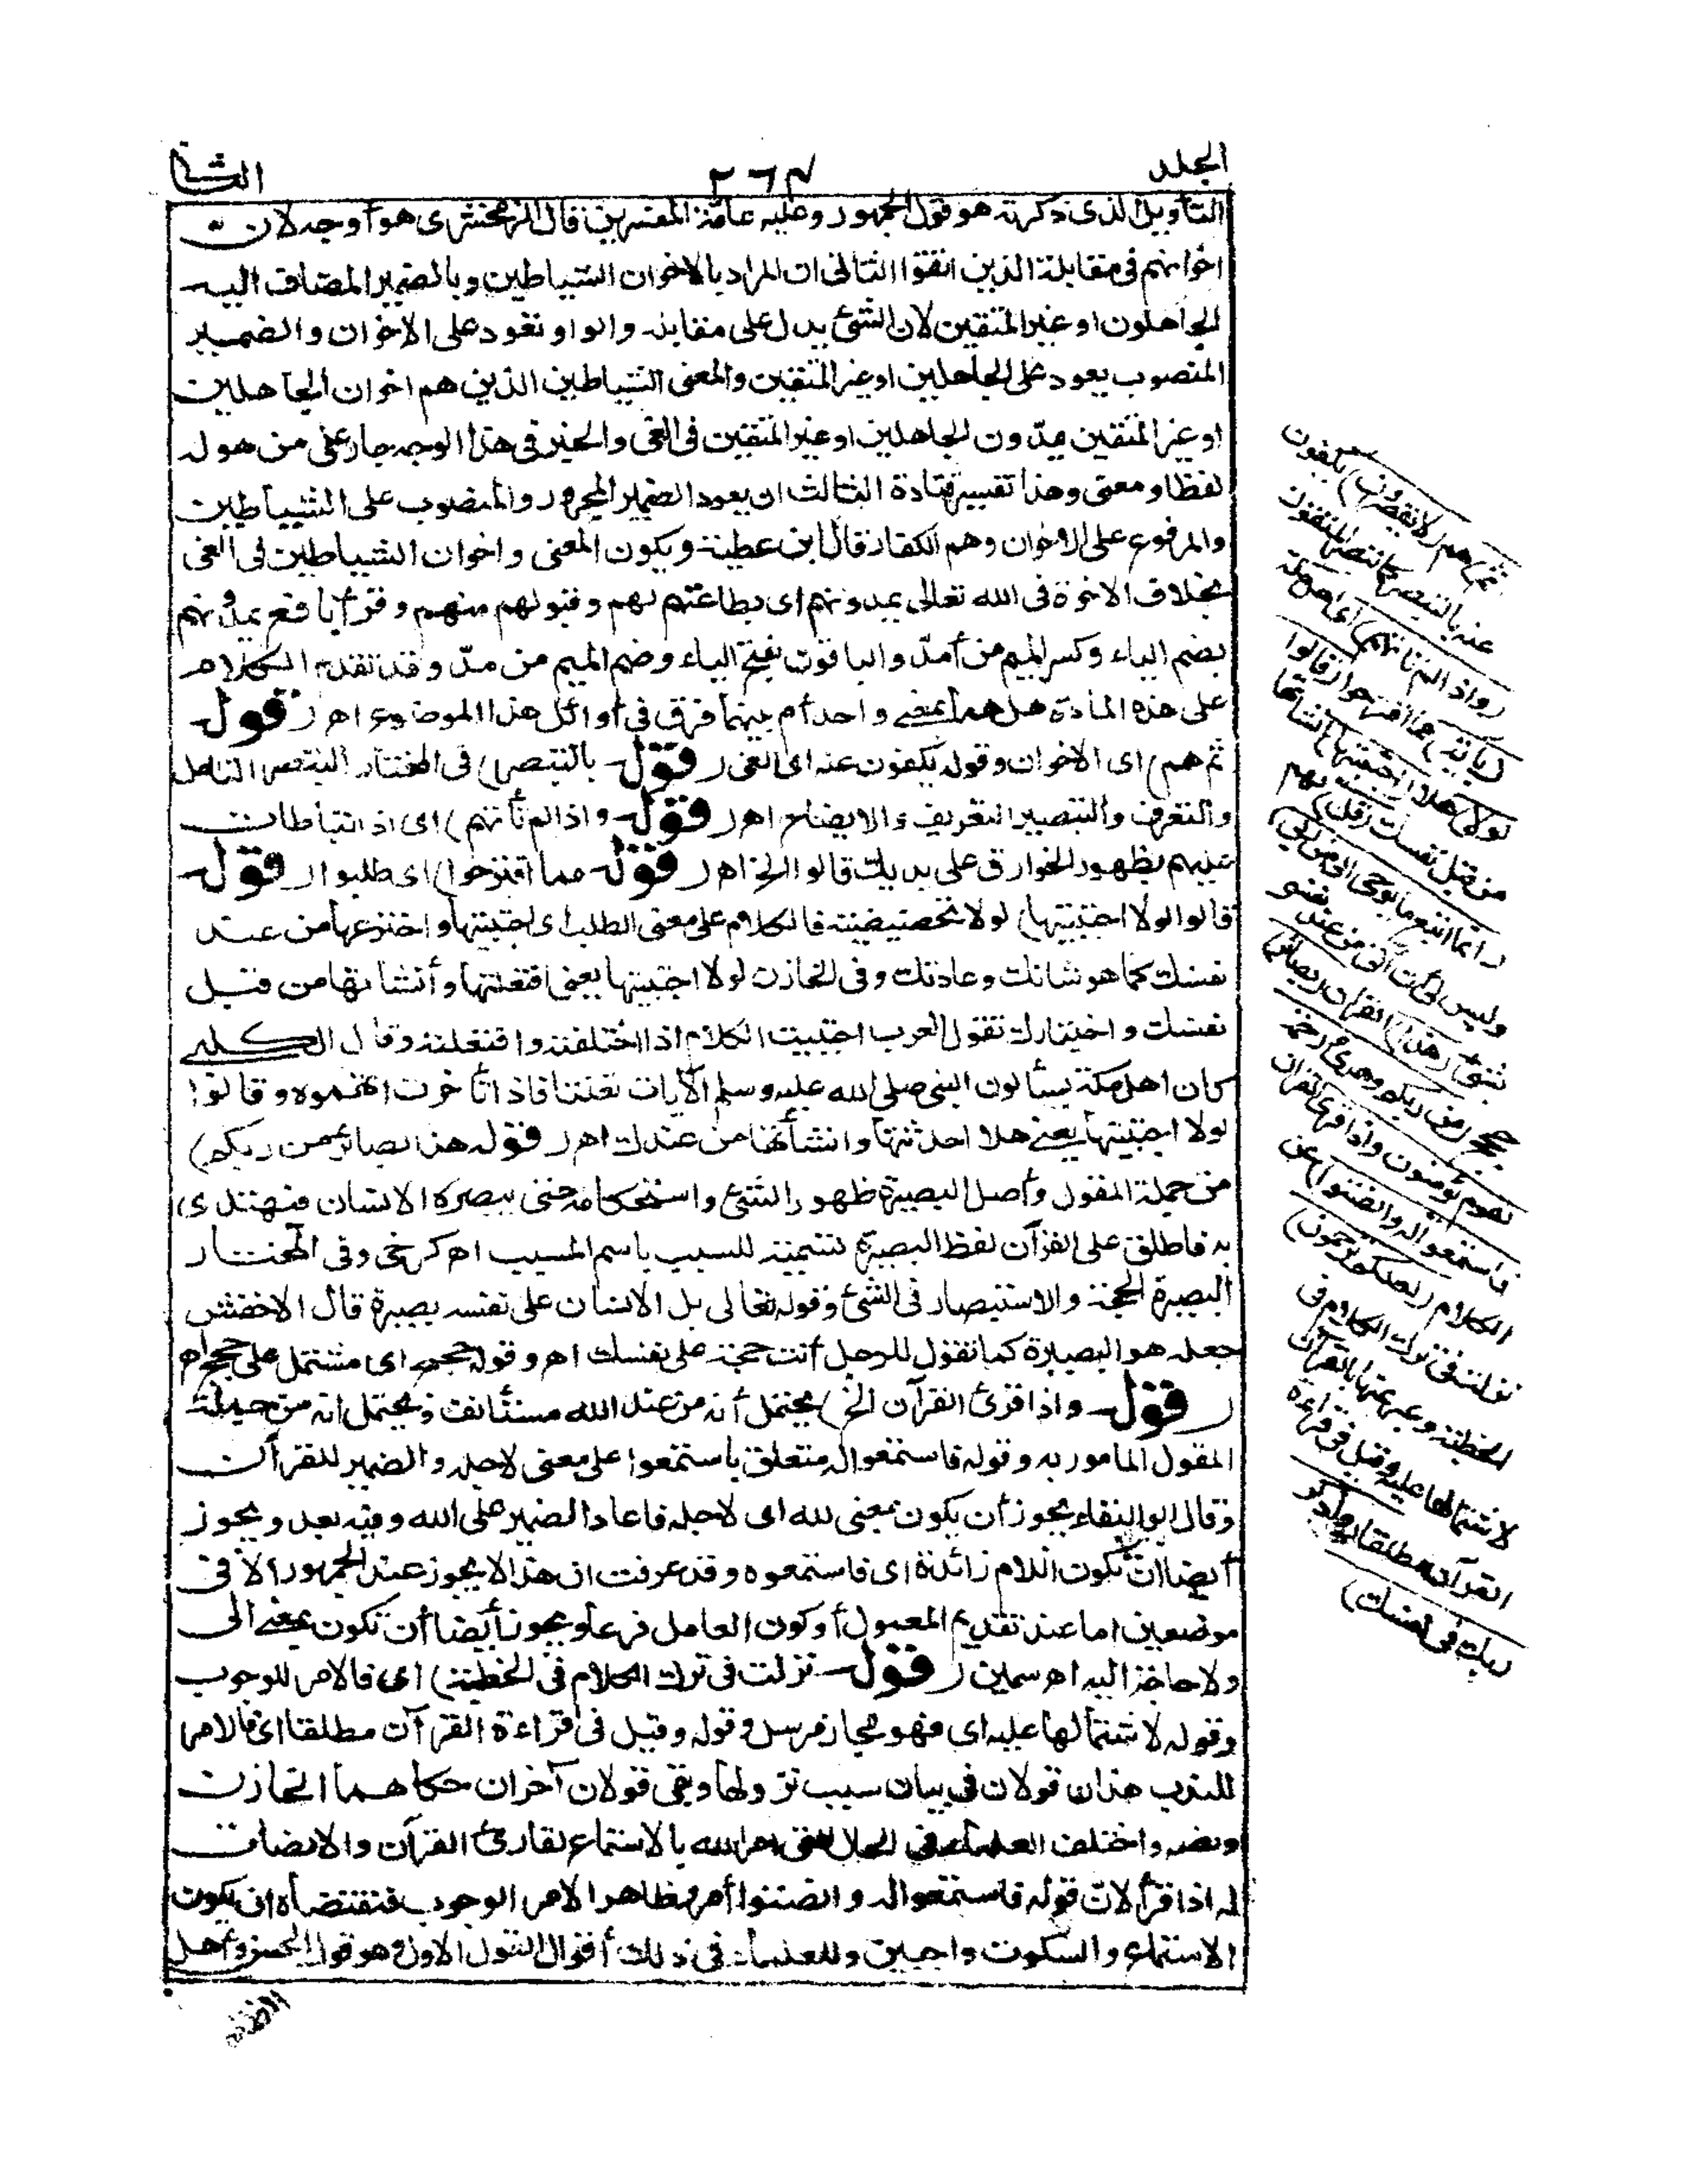 الجلد
٢٦٣
الثانى
التأويل الذى ذكرته هو قول الجمهور وعليه عامة المفسرين قال الزمخشرى هو أوجه لان
اخوانهم فى مقابلة الذين اتقوا الثانى ان المراد بالاخوان الشياطين وبالضمير المضاف اليه
الجاهلون او غير المتقين لان الشئ يدل على مقابله والواو تعود على الاخوان والضمير
المنصوب يعود على الجاهلين او غير المتقين والمعنى الشياطين الذين هم اخوان الجاهلين
او غير المتقين يمدّون الجاهلين او غير المتقين فى الغى والخبر فى هذا الوجه جار على من هو له
لفظا ومعنى وهذا تفسير قتادة الثالث ان يعود الضمير المجرور والمنصوب على الشياطين
والمرفوع على الاخوان وهم الكفار قال ابن عطية ويكون المعنى واخوان الشياطين فى الغى
بخلاف الاخوة فى الله تعالى يمدونهم اى بطاعتهم لهم وقبولهم منهم وقرأ نافع يمدونهم
بضم الياء وكسر الميم من أمدّ والباقون بفتح الياء وضم الميم من مدّ وقد تقدم الكلام
على هذه المادة هل هما بمعنى واحد أم بينهما فرق فى أوائل هذا الموضوع اهـ (قوله
ثم هم) اى الاخوان وقوله يكفون عنه اى الغى (قوله بالتبصر) فى المختار التبصر التأمل
والتعرف والتبصير التعريف والايضاح اهـ (قوله واذا لم تأتهم) اى اذا تباطأت
عليهم بظهور الخوارق على يديك قالوا الخ اهـ (قوله مما اقترحوا) اى طلبوا (قوله
قالوا لولا اجتبيتها) لولا تحضيضية فالكلام على معنى الطلب اى اجتبيتها واخترعها من عند
نفسك كما هو شانك وعادتك وفى الخازن لولا اجتبيتها يعنى افتعلتها وأنشاتها من قبل
نفسك واختيارك تقول العرب اجتبيت الكلام اذا اختلقته وافتعلته وقال الكلبى
كان اهل مكة يسألون النبى صلى الله عليه وسلم الآيات تعنتا فاذا تأخرت اتهموه وقالوا
لولا اجتبيتها يعنى هلا احدثتها وانشأتها من عندك اهـ (قوله هذا بصائر من ربكم)
من جملة المقول وأصل البصيرة ظهور الشئ واستحكامه حتى يبصره الانسان فيهتدى
به فاطلق على القرآن لفظ البصيرة تسمية للسبب باسم المسبب اهـ كرخى وفى المختار
البصيرة الحجة والاستبصار فى الشئ وقوله تعالى بل الانسان على نفسه بصيرة قال الاخفش
جعله هو البصيرة كما تقول للرجل أنت حجة على نفسك اهـ وقوله حجج اى مشتمل على حجج اهـ
(قوله واذا قرئ القرآن الخ) يحتمل أنه من عند الله مستأنف ويحتمل انه من جملة
المقول المامور به وقوله فاستمعوا له متعلق باستمعوا على معنى لاجله والضمير للقرآن
وقال ابو البقاء يجوز أن يكون بمعنى لله اى لاجله فاعاد الضمير على الله وفيه بعد ويجوز
أيضا ان تكون اللام زائدة اى فاستمعوه وقد عرفت ان هذا لا يجوز عند الجمهور الا فى
موضعين اما عند تقديم المعمول أو كون العامل فرعا ويجوز أيضا أن تكون بمعنى الى
ولا حاجة اليه اهـ سمين (قوله نزلت فى ترك الكلام فى الخطبة) اى فالامر للوجوب
وقوله لاشتمالها عليه اى فهو مجاز مرسل وقوله وقيل فى قراءة القرآن مطلقا اى فالامر
للندب هذان قولان فى بيان سبب نزولها وبقى قولان آخران حكاهما الخازن
ونصه واختلف العلماء فى الحال التى امر الله بالاستماع لقارئ القرآن والانصات
له اذا قرأ لان قوله فاستمعوا له وانصتوا أمر وظاهر الامر الوجوب فمقتضاه ان يكون
الاستماع والسكوت واجبين وللعلماء فى ذلك أقوال القول الاول وهو قول الحسن وأهل
(ثم هم (لا يقصرون) يكفون
عنه بالتبصر كما تبصر المتقون
(واذا لم تأتهم) اى اهل مكة
(بآية) مما اقترحوا (قالوا
لولا) هلا (اجتبيتها) انشأتها
من قبل نفسك (قل) لهم
(انما اتبع ما يوحى الى من ربى)
وليس لى أن آتى من عند نفسى
بشئ (هذا) القرآن (بصائر)
حجج (من ربكم وهدى ورحمة
لقوم يؤمنون واذا قرئ القرآن
فاستمعوا له وانصتوا) عن
الكلام (لعلكم ترحمون)
نزلت فى ترك الكلام فى
الخطبة وعبر عنها بالقرآن
لاشتمالها عليه وقيل فى قراءة
القرآن مطلقا (واذكر
ربك فى نفسك)